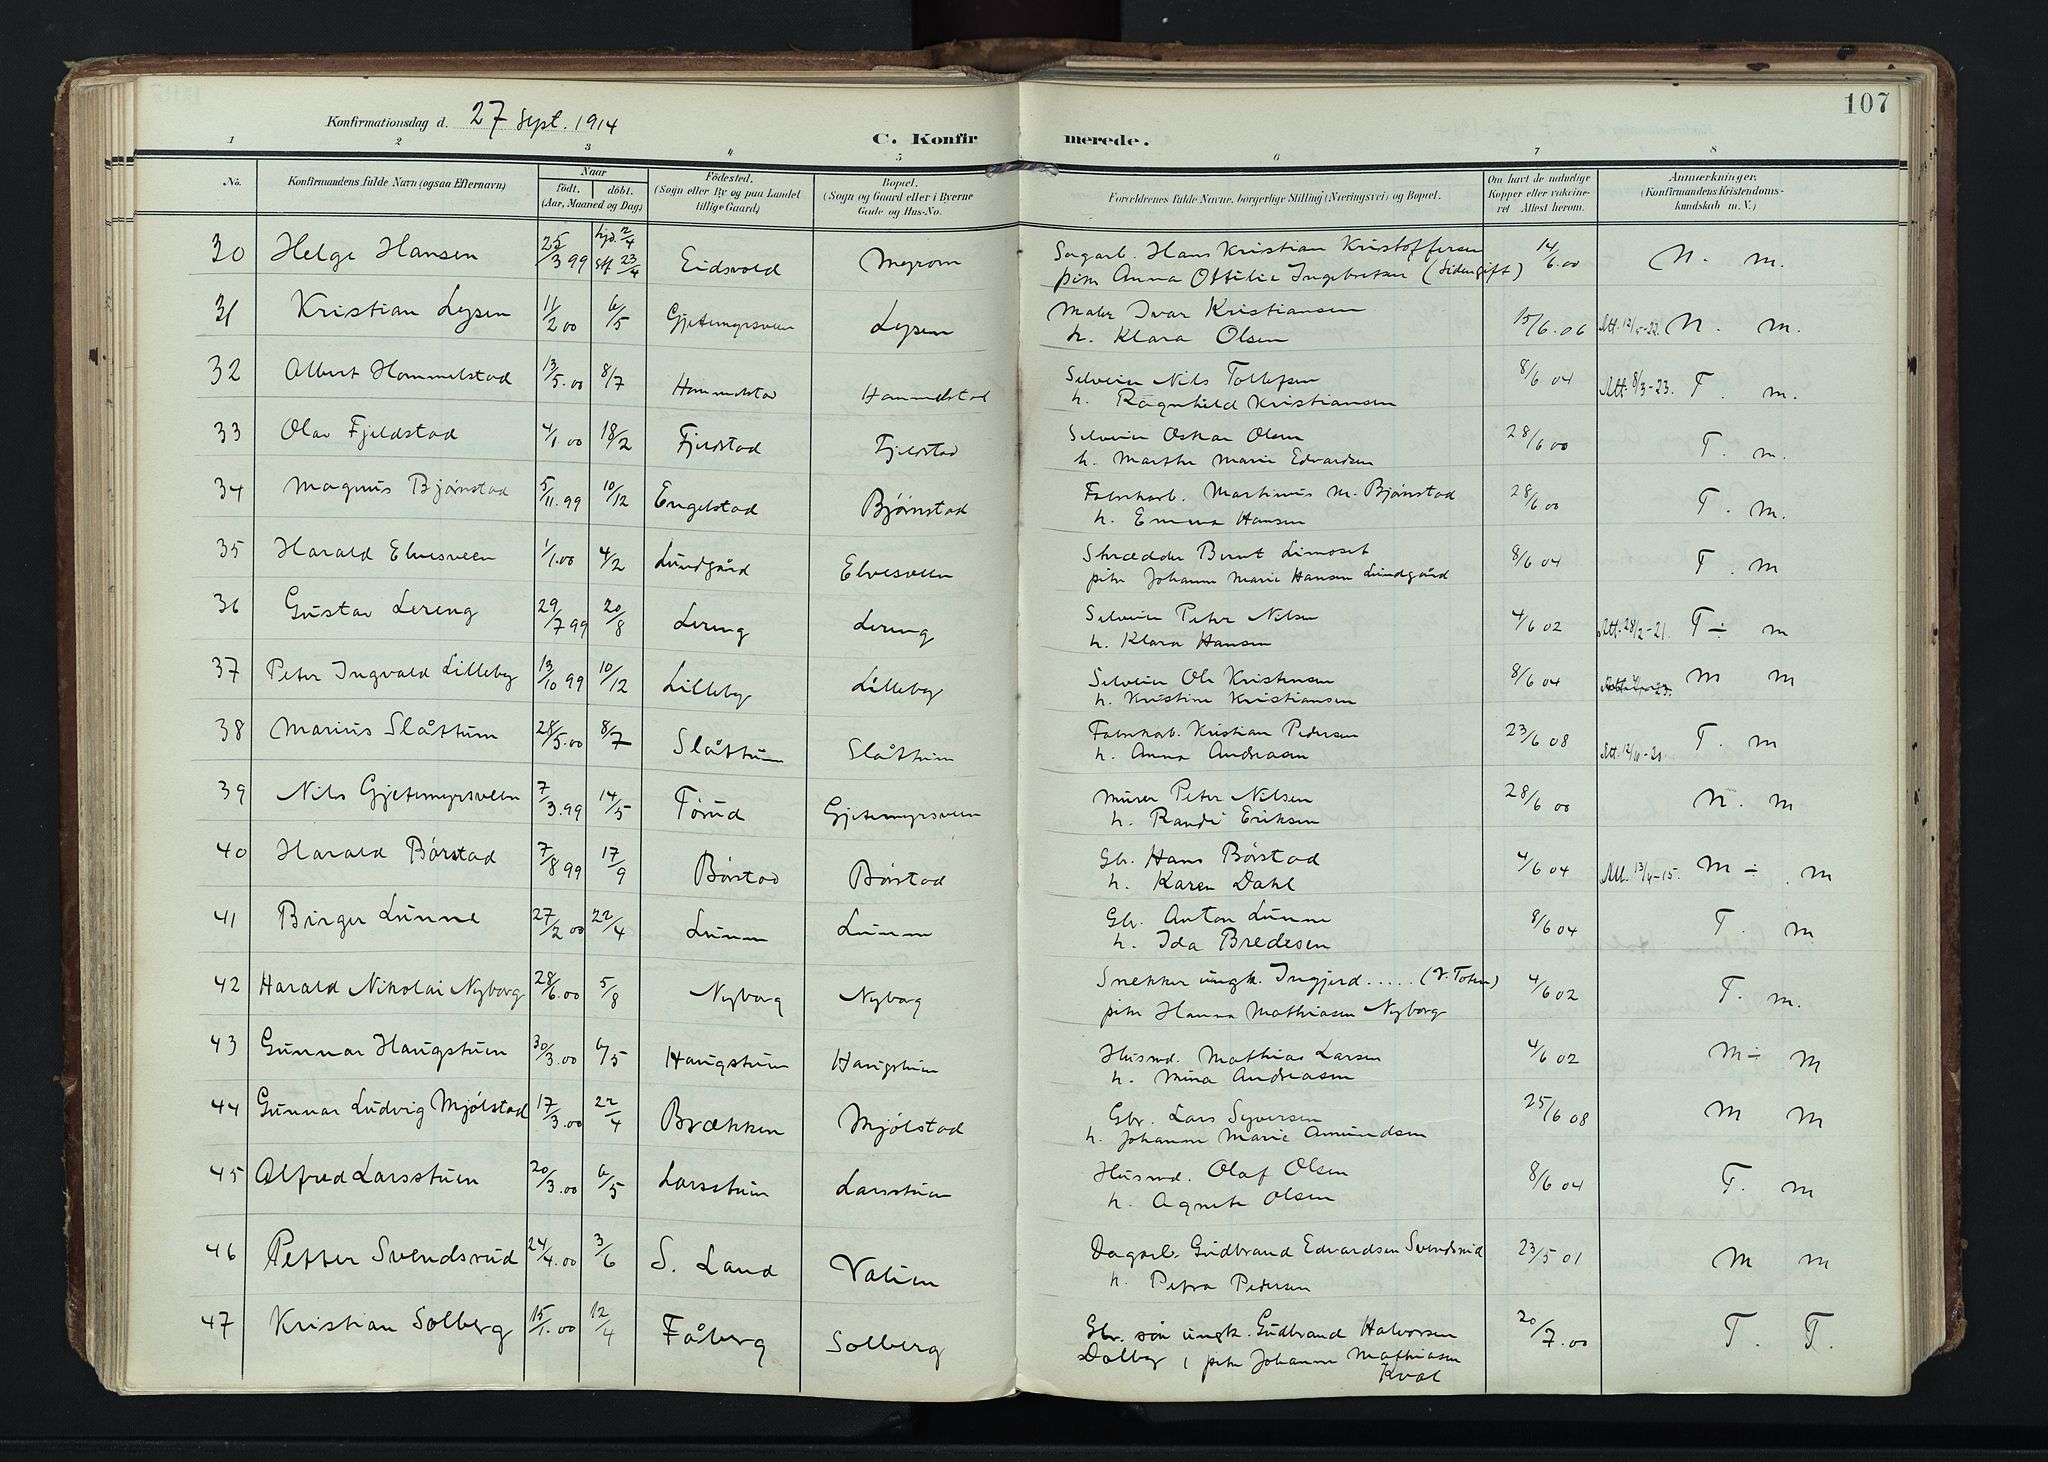 107
Konfirmationsdag d. 27 Sept. 1914
C. Konfirmerede.
1 2 3 4 5 6 7 8
No. Konfirmandens fulde Navn (ogsaa Efternavn) Naar født. døbt. (Aar, Maaned og Dag) Fødested. (Sogn eller By og paa Landet tillige Gaard) Bopæl. (Sogn og Gaard eller i Byerne Gade og Hus-No. Forældrenes fulde Navne, borgerlige Stilling (Næringsvei) og Bopæl. Om havt de naturlige Kopper eller vakcineret Attest herom. Anmærkninger. (Konfirmandens Kristendomskundskab m. V.)
30 Helge Hansen 25/3 99 hjd. 2/4 stf 23/4 Eidsvold Myrom Sagarb. Hans Kristian Kristoffersen 14/6.00 N. m.
pike Anna Ottilie Ingebretsen (Sidengift)
31 Kristian Lysen 11/2 00 6/5 Gjetemyrsveen Lysen Maler Ivar Kristiansen 15/6.06 Att. 12/5-22. N. m.
h. Klara Olsen
32 Albert Hammelstad 13/5.00 8/7 Hammelstad Hammelstad Selveier Nils Tollefsen 8/6 04 Att. 8/3-23. T. m.
h. Ragnhild Kristiansen
33 Olav Fjeldstad 4/1.00 18/2 Fjeldstad Fjeldstad Selveier Oskar Olsen 28/6 00 T. m.
h. Marthe Marie Edvardsen
34 Magnus Bjørnstad 5/11.99 10/12 Engelstad Bjørnstad Fabrikarb. Martinius M. Bjørnstad 28/6 00 T. m.
h. Emma Hansen
35 Harald Elvesveen 1/1.00 4/2 Lundgård Elvesveen Skrædder Bernt Limoset 8/6 04 T. m
pike Johanne Marie Hansen Lundgård
36 Gustav Lereng 29/7 99 20/8 Lereng Lereng Selveier Peter Nilsen 4/6 02 Att. 28/2-21. T ÷ m
h. Klara Hansen
37 Peter Ingvald Lilleby 13/10 99 10/12 Lilleby Lilleby Selveier Ole Kristensen 8/6 04 m m
h. Kristine Kristiansen
38 Marius Slåttum 28/5.00 8/7 Slåttum Slåttum Fabrikarb. Kristian Pedersen 23/6 08 Att. 12/6-20. T. m
h. Anna Andreasen
39 Nils Gjetemyrsveen 7/3.99 14/5 Tørud Gjetemyrsveen Murer Peter Nilsen 28/6 00 N. m
h. Randi Eriksen
40 Harald Børstad 7/8 99 17/9 Børstad Børstad Gbr. Hans Børstad 4/6 04 Att. 13/4-15. M ÷ . m
h. Karen Dahl
41 Birger Lunne 27/2 00 22/4 Lunne Lunne Gbr. Anton Lunne 8/6 04 T. m.
h. Ida Bredesen
42 Harald Nikolai Nyborg 28/6.00 5/8 Nyborg Nyborg Snekker ungk. Ingjerd ..... (V. Toten) 4/6 02 T. m.
pike Hanna Mathiasen Nyborg
43 Gunnar Haugstuen 30/3.00 6/5 Haugstuen Haugstuen Husmd. Mathias Larsen 4/6 02 M ÷ M
h. Mina Andreasen
44 Gunnar Ludvig Mjølstad 17/3.00 22/4 Brækken Mjølstad Gbr. Lars Syversen 25/6 08 M M
h. Johanne Marie Amundsen
45 Alfred Larsstuen 20/3.00 6/5 Larsstuen Larsstuen Husmd. Olaf Olsen 8/6 04 T. m
h. Agnete Olsen
46 Petter Svendsrud 24/4.00 3/6 S. Land Vatuen Dagarb. Gudbrand Edvardsen Svendsrud 23/5 01 M m
h. Petra Pedersen
47 Kristian Solberg 15/1.00 12/4 Fåberg Solberg Gbr. søn ungk. Gudbrand Halvorsen 20/7.00 T. T.
Dalby, pike Johanne Mathiasen
Kval